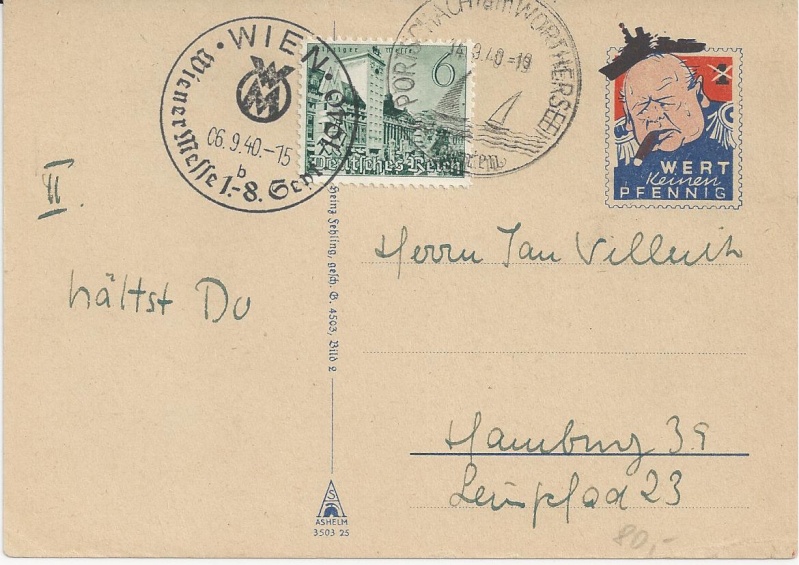 · WIEN ·
WM
06.9.40.-15
b
Wiener Messe 1.-8. Sept. 1940
Leipziger Messe
6
Deutsches Reich
PÖRTSCHACH am WÖRTHERSEE
14.9.40.-19
WERT
keinen
PFENNIG
II.
hältst Du
Heinz Fehling, gesch. G. 4503, Bild 2
Herrn Jan
Hamburg 39
Leinpfad 23
ASHELM
3503 25
80,-